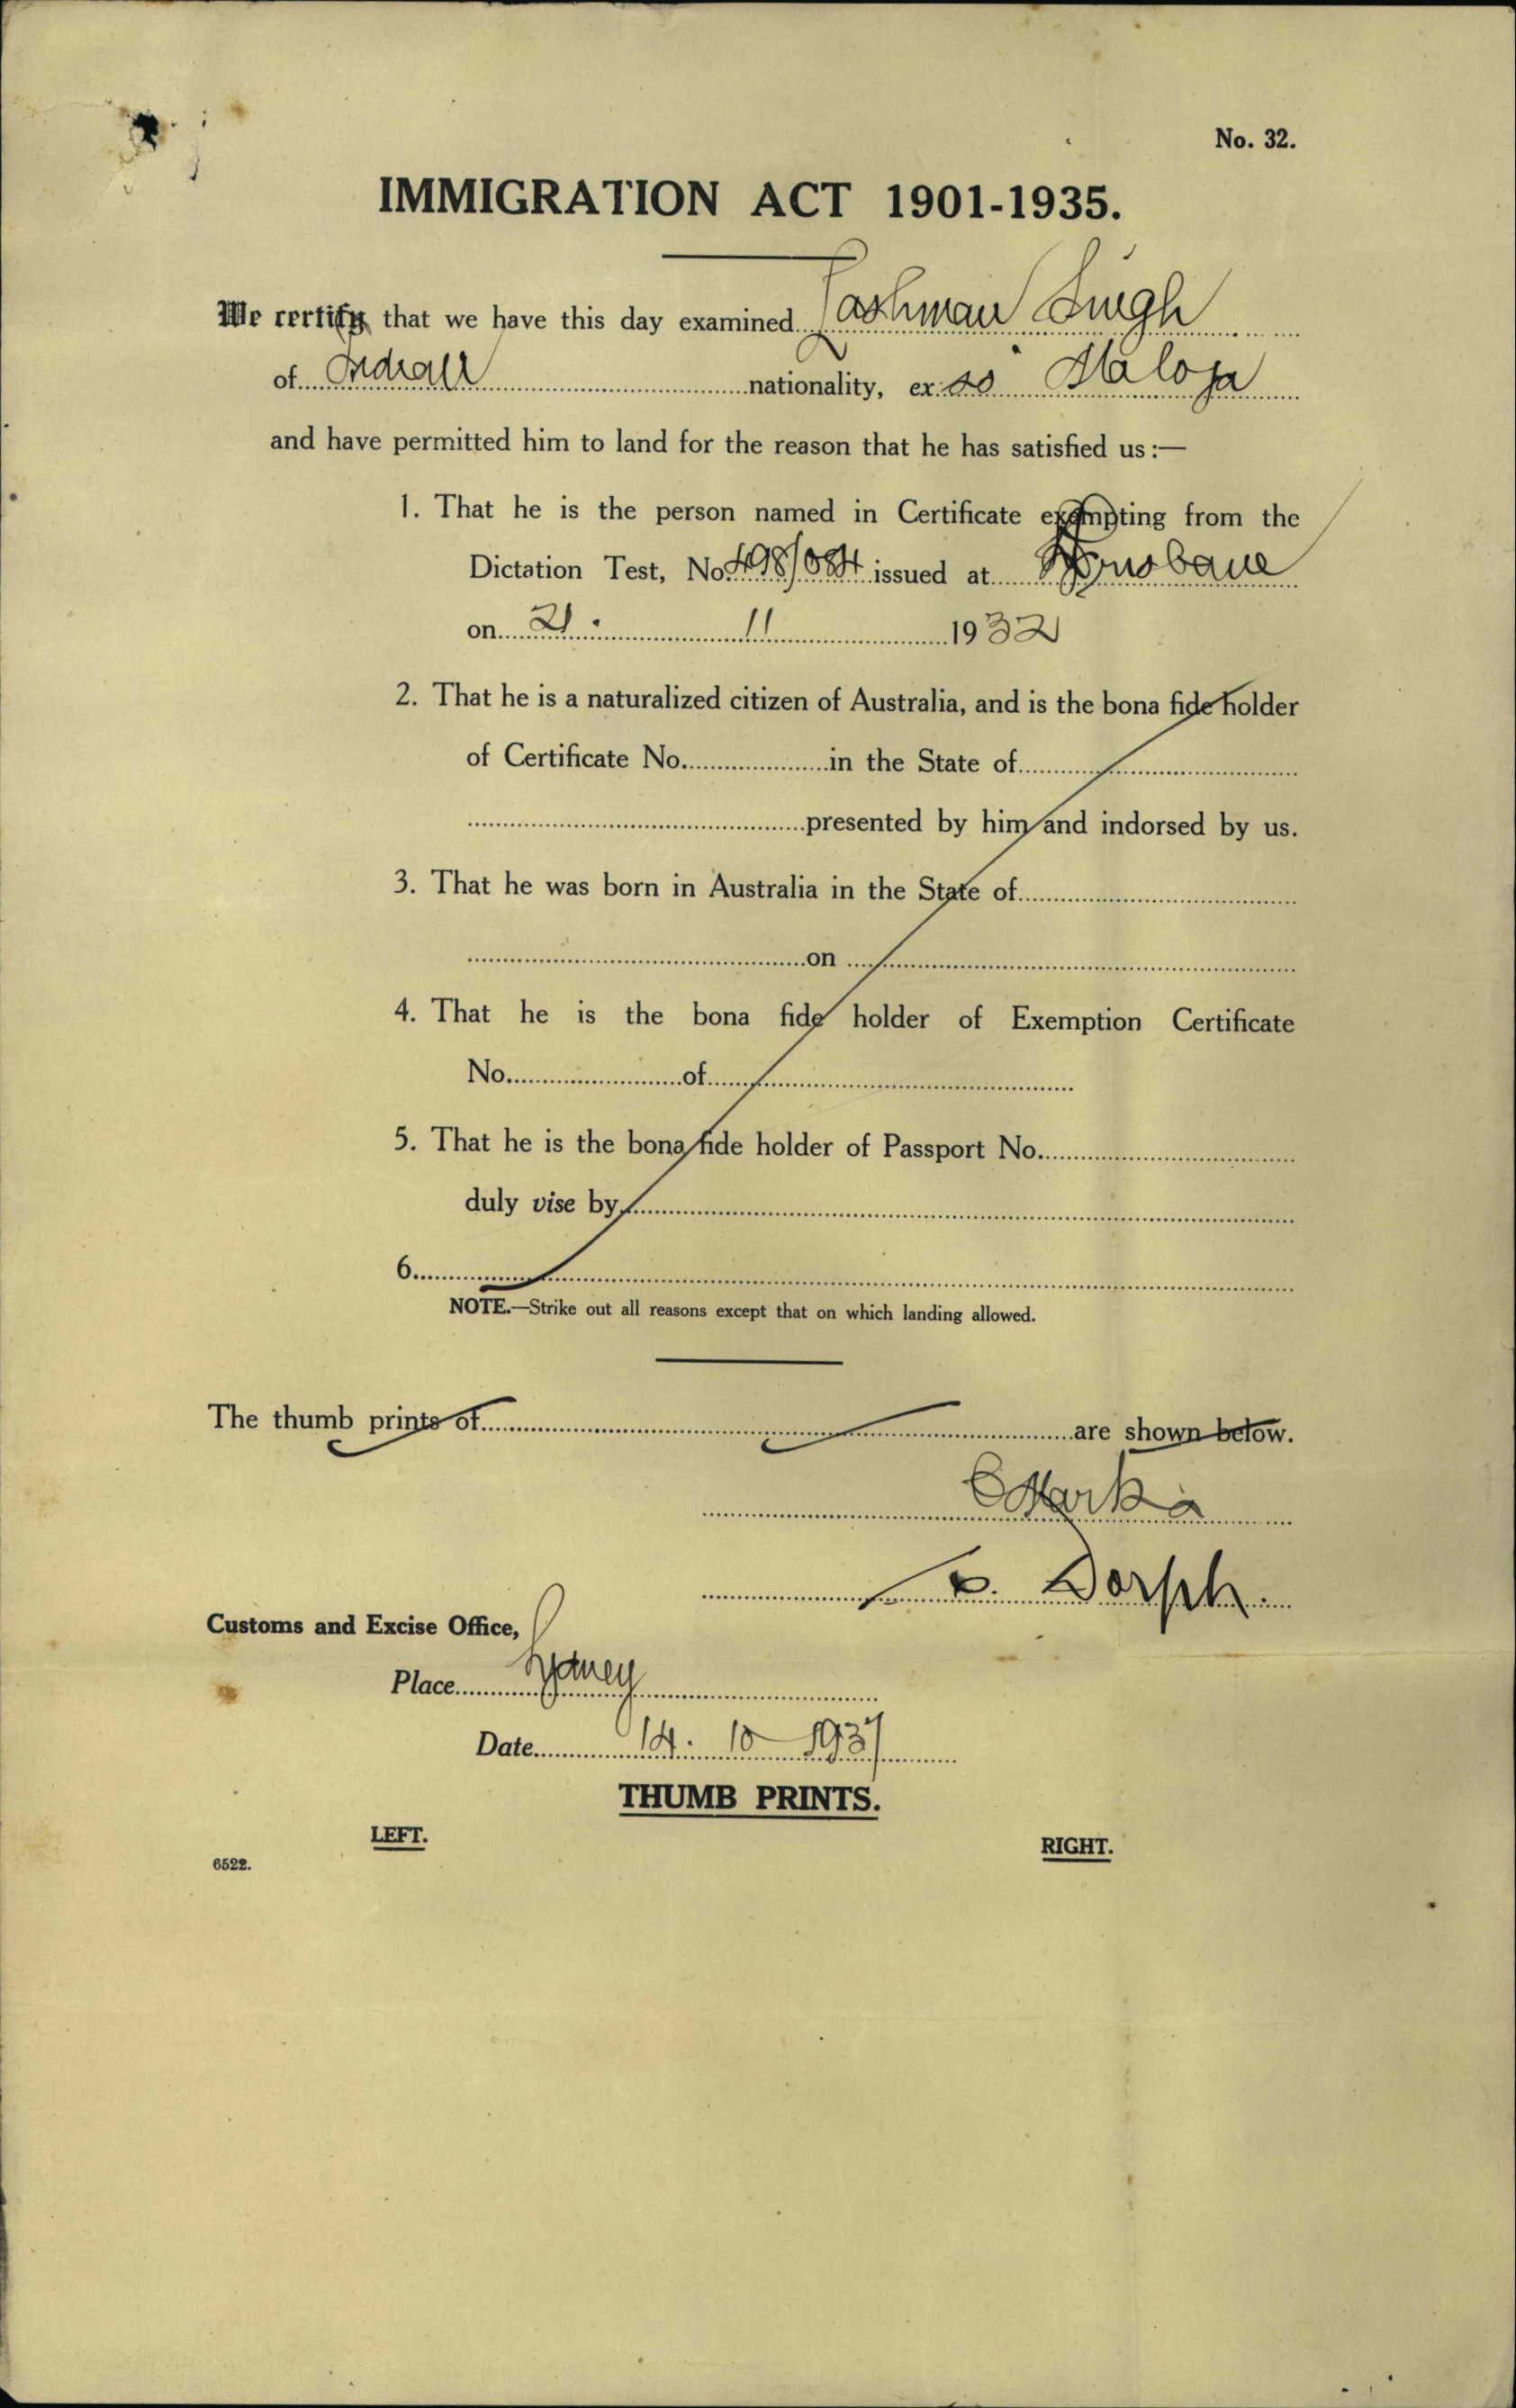 No. 32.
IMMIGRATION ACT 1901-1935.
We certify that we have this day examined Lashman Singh
of Indian nationality, ex ss Maloja
and have permitted him to land for the reason that he has satisfied us:—
1. That he is the person named in Certificate exempting from the
Dictation Test, No. 498/084 issued at Brisbane
on 2 . 11 1932
2. That he is a naturalized citizen of Australia, and is the bona fide holder
of Certificate No. in the State of
presented by him and indorsed by us.
3. That he was born in Australia in the State of
on
4. That he is the bona fide holder of Exemption Certificate
No. of
5. That he is the bona fide holder of Passport No.
duly vise by
6.
NOTE.—Strike out all reasons except that on which landing allowed.
The thumb prints of are shown below.
Customs and Excise Office,
Place Sydney
Date 14. 10 1937
THUMB PRINTS.
LEFT.
RIGHT.
6522.